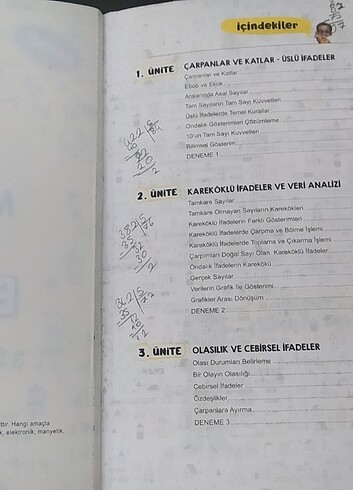 içindekiler
1. ÜNİTE ÇARPANLAR VE KATLAR - ÜSLÜ İFADELER
Çarpanlar ve Katlar
Ebob ve Ekok
Aralarında Asal Sayılar
Tam Sayıların Tam Sayı Kuvvetleri
Üslü İfadelerde Temel Kurallar
Ondalık Gösterimleri Çözümleme
10'un Tam Sayı Kuvvetleri
Bilimsel Gösterim
DENEME 1
2. ÜNİTE KAREKÖKLÜ İFADELER VE VERİ ANALİZİ
Tamkare Sayılar
Tamkare Olmayan Sayıların Karekökleri
Kareköklü İfadelerin Farklı Gösterimleri
Kareköklü İfadelerde Çarpma ve Bölme İşlemi
Kareköklü İfadelerde Toplama ve Çıkarma İşlemi
Çarpımları Doğal Sayı Olan Kareköklü İfadeler
Ondalık İfadelerin Karekökü
Gerçek Sayılar
Verilerin Grafik İle Gösterimi
Grafikler Arası Dönüşüm
DENEME 2
3. ÜNİTE OLASILIK VE CEBİRSEL İFADELER
Olası Durumları Belirleme
Bir Olayın Olasılığı
Cebirsel İfadeler
Özdeşlikler
Çarpanlara Ayırma
DENEME 3
ttir. Hangi amaçla
k, elektronik, manyetik,